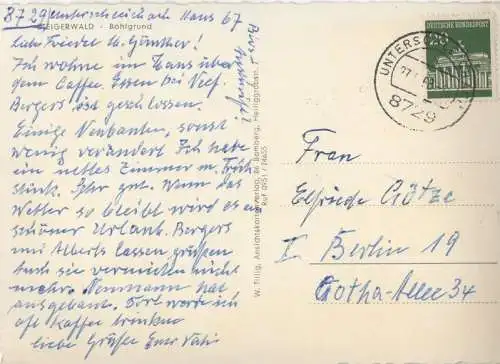 8729 Unterschleichach Haus 67
STEIGERWALD - Böhlgrund
Liebe Friedel u. Günther!
Ich wohne im Haus über
dem Caffee. Essen bei Neef.
Bergers ist geschlossen.
Einige Neubauten, sonst
wenig verändert Ich habe
ein nettes Zimmer m. Früh
stück. Sehr gut. Wenn das
Wetter so bleibt wird es ein
schöner Urlaub. Bergers
und Alberts lassen grüßen
auch sie vermieten nicht
mehr. Neumann hat
ausgebaut. Dort werde ich
oft Kaffee trinken
liebe Grüße Euer Vati
W. Tillig, Ansichtskartenverlag, Bamberg, Heiliggrabstr.
Ruf 0951 / 24655
DEUTSCHE BUNDESPOST
8729
Frau
Elfriede Götze
I Berlin 19
Gotha-Allee 34